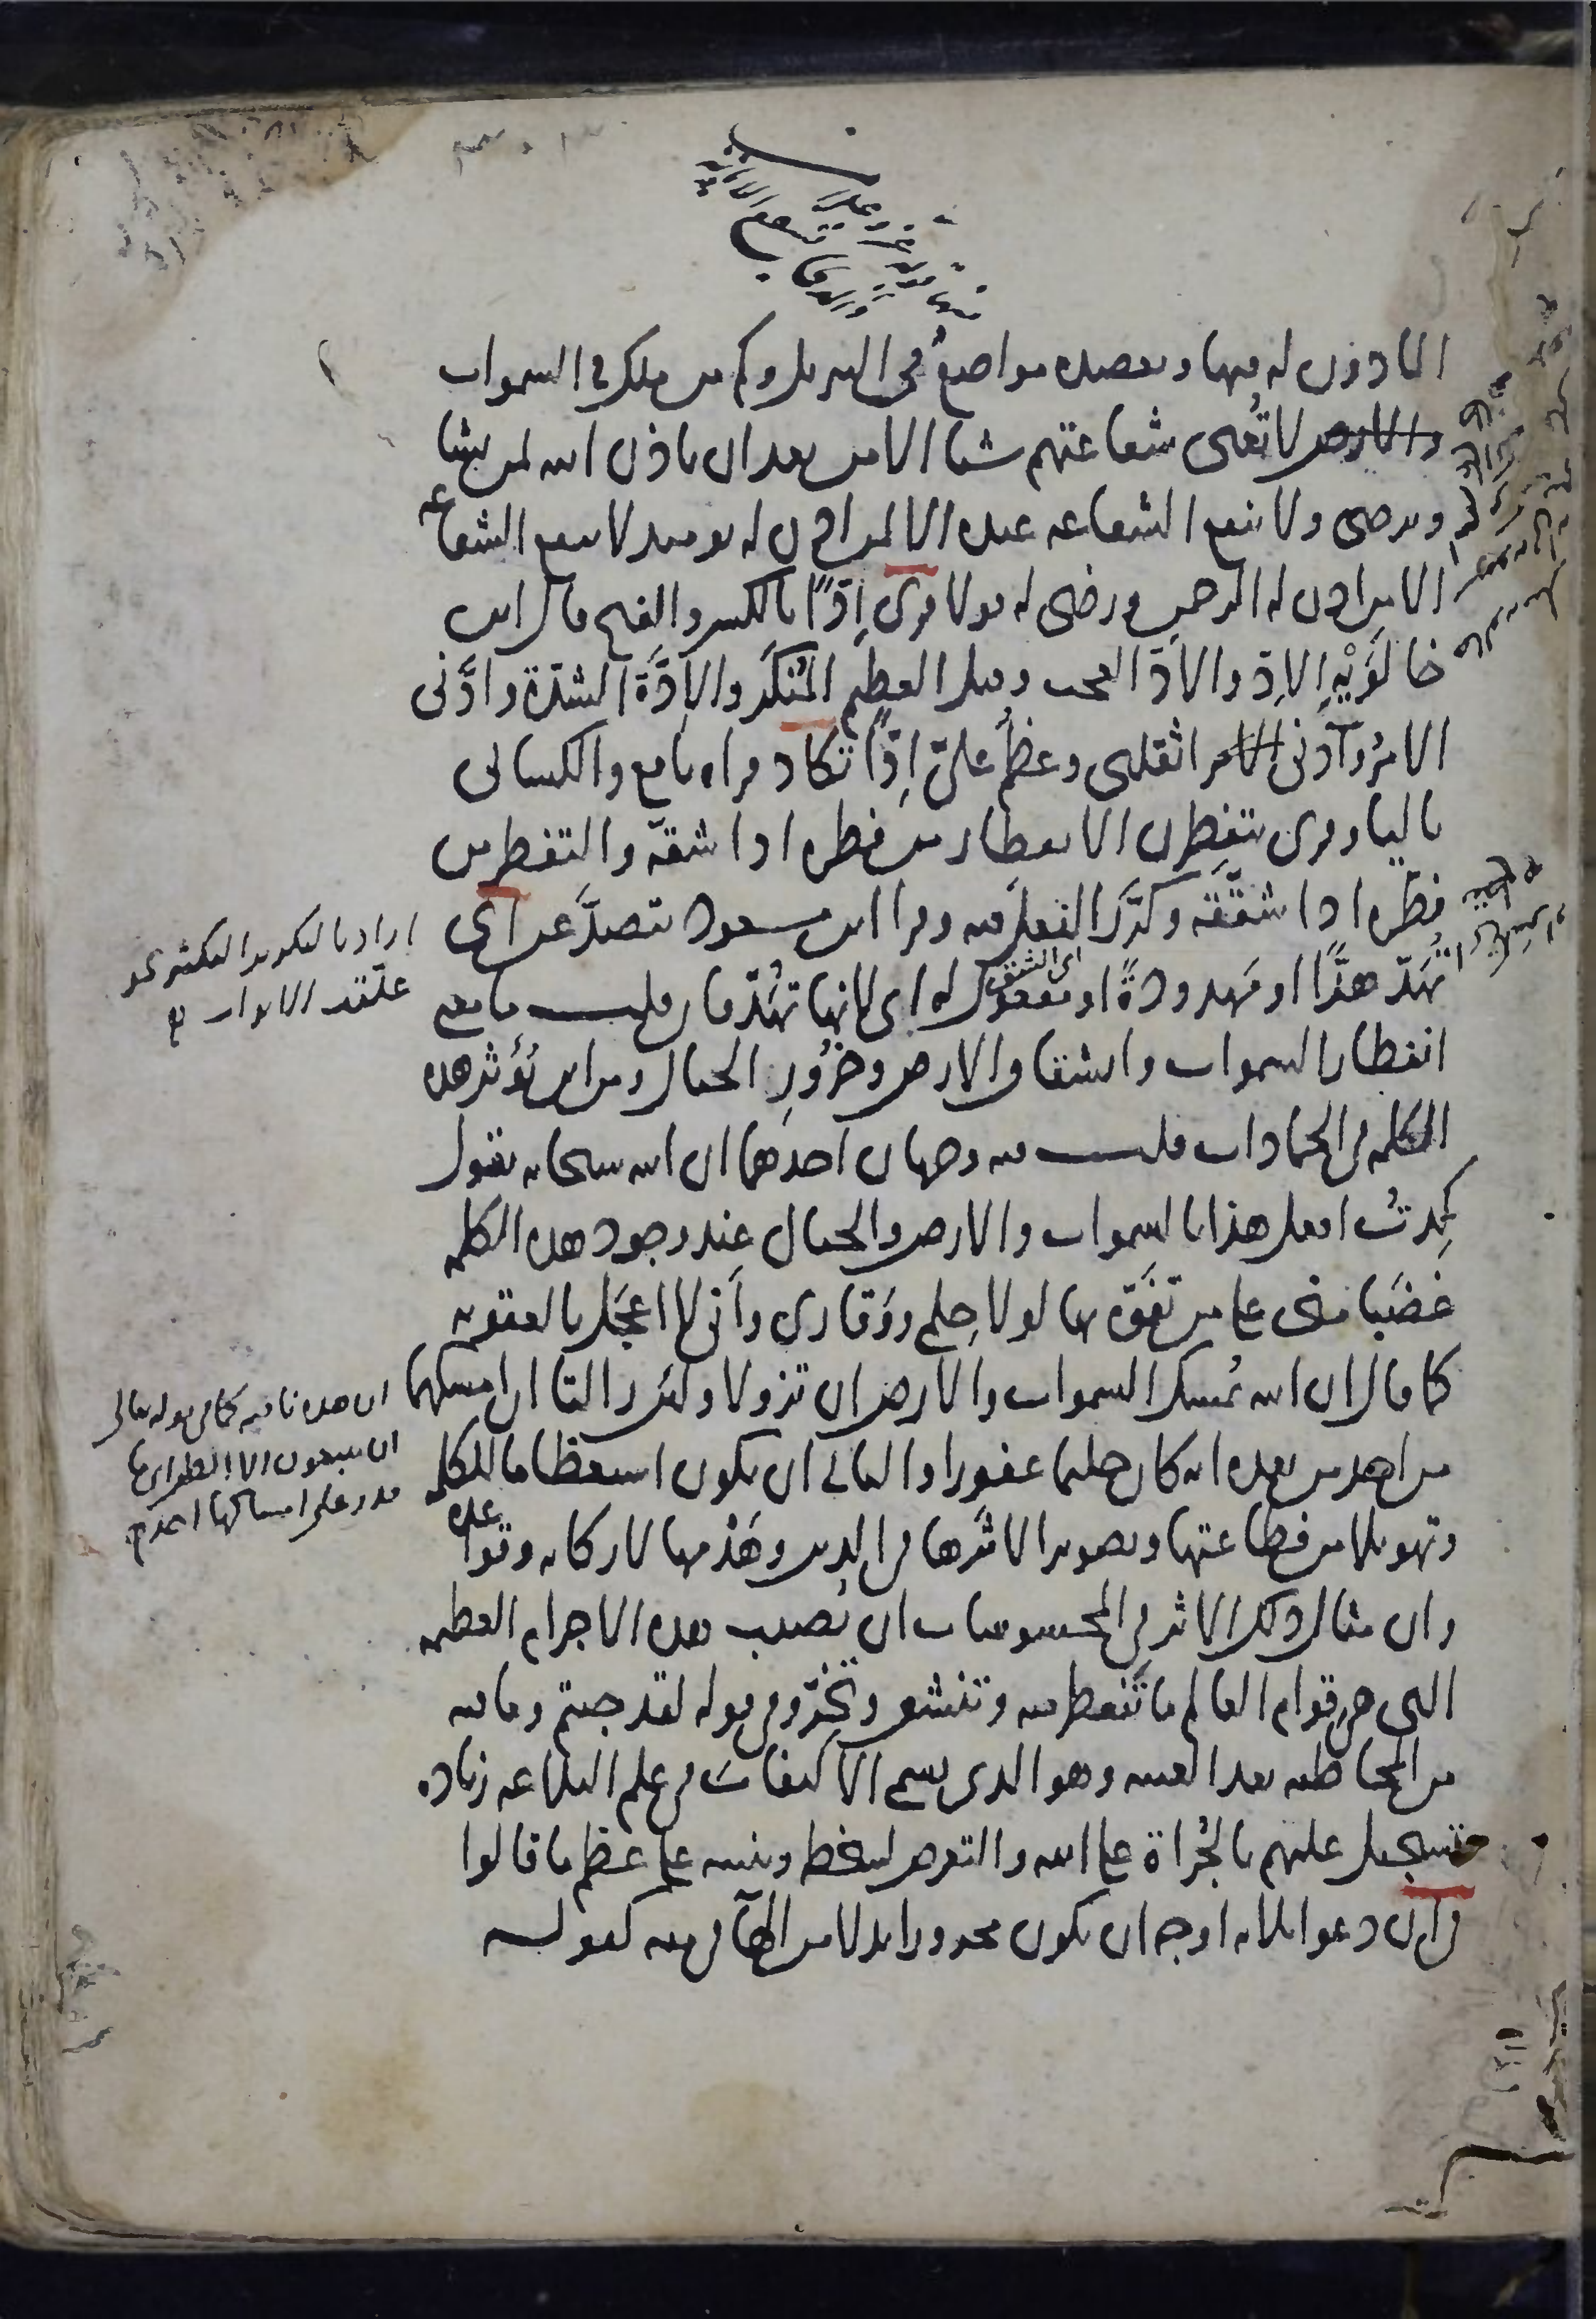 الماذون له فيها وتعضده مواضع في التنزيل وكم من ملك في السموات
والارض لا تغنى شفاعتهم شيا الا من بعد ان ياذن الله لمن يشا
ويرضى ولا تنفع الشفاعه عنده الا لمن اذن له يومئذ لا تنفع الشفاعه
الا من اذن له الرحمن ورضى له قولا قرى اِدًّا بالكسر والفتح قال ابن
خالَوَيْهِ الاِدّ والاَدّ العجب وقيل العظيم المُنكَر والاِدَّة الشدّة وادَّنى
الامرُ وآدنى اثقلنى وعظُم علىّ اِدًّا تكاد قراه نافع والكسائى
باليا وقرى يتفطرن الانفطار من فطره اذا شقّه والتفطر من
فطّره اذا شققّه وكرَّر الفعل فيه وقرا ابن مسعود يتصدَّعن اى
تُهَدّ هدًّا او مَهدودةً او مفعول له اى لانها تُهَدّ فان قلت ما معنى
اى الشقق
انفطار السموات وانشقاق الارض وخُرُورِ الجبال ومن اين تُؤثر هذه
الكلمه في الجمادات قلت فيه وجهان احدهما ان الله سبحانه يقول
كِدتُ افعل هذا بالسموات والارض والجبال عند وجود هذه الكلمه
غضَبا منى على من تفوَّه بها لولا حِلمى ووَقارى وأنى لا اعجَل بالعقوبه
كما قال ان الله يُمسك السموات والارض ان تزولا ولئن زالتا ان امسكهما
من احد من بعده انه كان حليما غفورا والثانى ان يكون استعظاما للكلمه
وتهويلا من فظاعتها وتصويرا لاثَرها في الدين وهَدْمها لاركانه وقواعده
وان مثال ذلك الاثر في المحسوسات ان يُصيب هذه الاجرام العظيمه
التى هى قوام العالم ما تنفطر منه وتنشق وتخِرّ وفي قوله لقد جئتم وما فيه
من المخاطبه بعد الغيبه وهو الذى يسمى الالتفات في علم البلاغه زياده
تسجيل عليهم بالجُراة على الله والتعرض لسخطه وتنبيه على عظم ما قالوا
في ان دعوا ثلاثه اوجه ان يكون مجرورا بدلا من الهآ في منه كقوله
اراد بالتكرير التكثير نحو
علّقت الابواب
ان هذه نافيه كما في قوله تعالى
ان يتبعون الا الظن اى ما
قدر على امساكهما احد